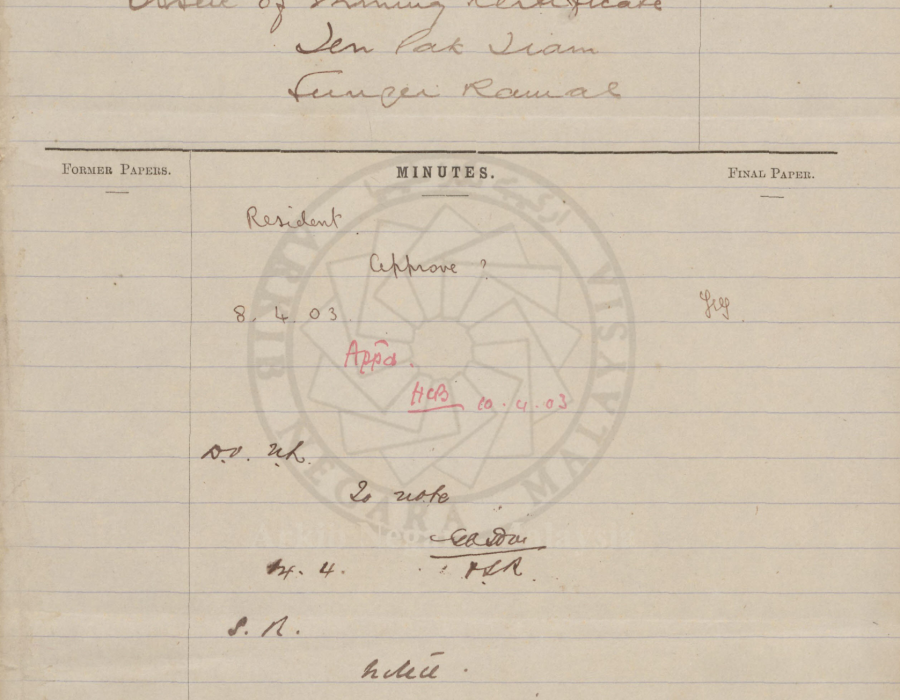 Issue of Mining Certificate
Ten Pak Tiam
Sungei Ramal
FORMER PAPERS.
MINUTES.
FINAL PAPER.
Resident
Approve?
8. 4. 03
Appd.
HCB 10.4.03
D.O. U.L.
To note
4.
S. R.
Noted.
ARKIB NEGARA MALAYSIA
Arkib Negara Malaysia